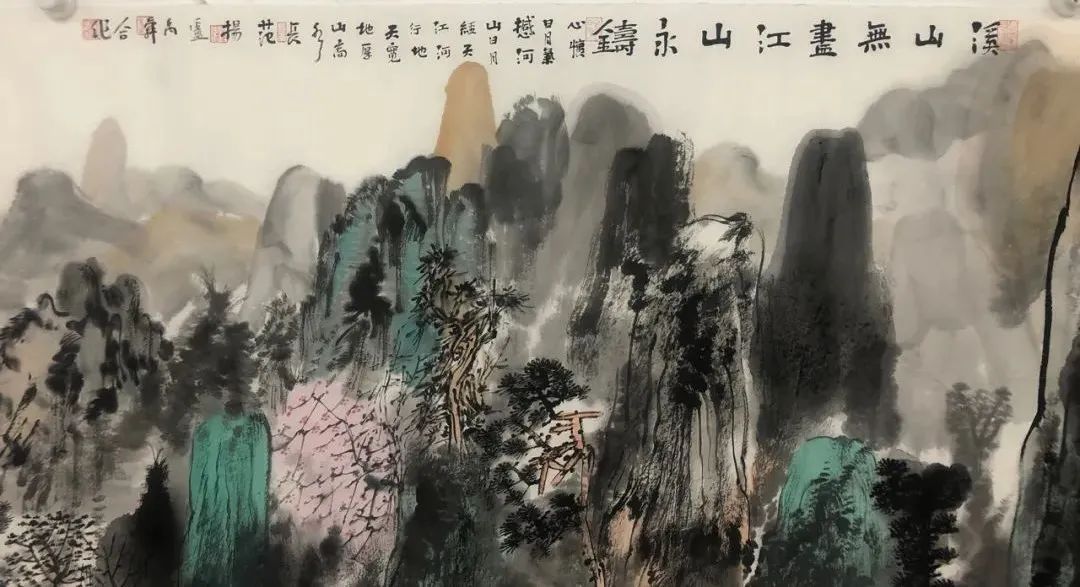 溪山無盡江山永鑄
心懷
日月氣
撼河
山日月
經天
江河
行地
天寬
地厚
山高
水
長
范揚盧禹舜合作